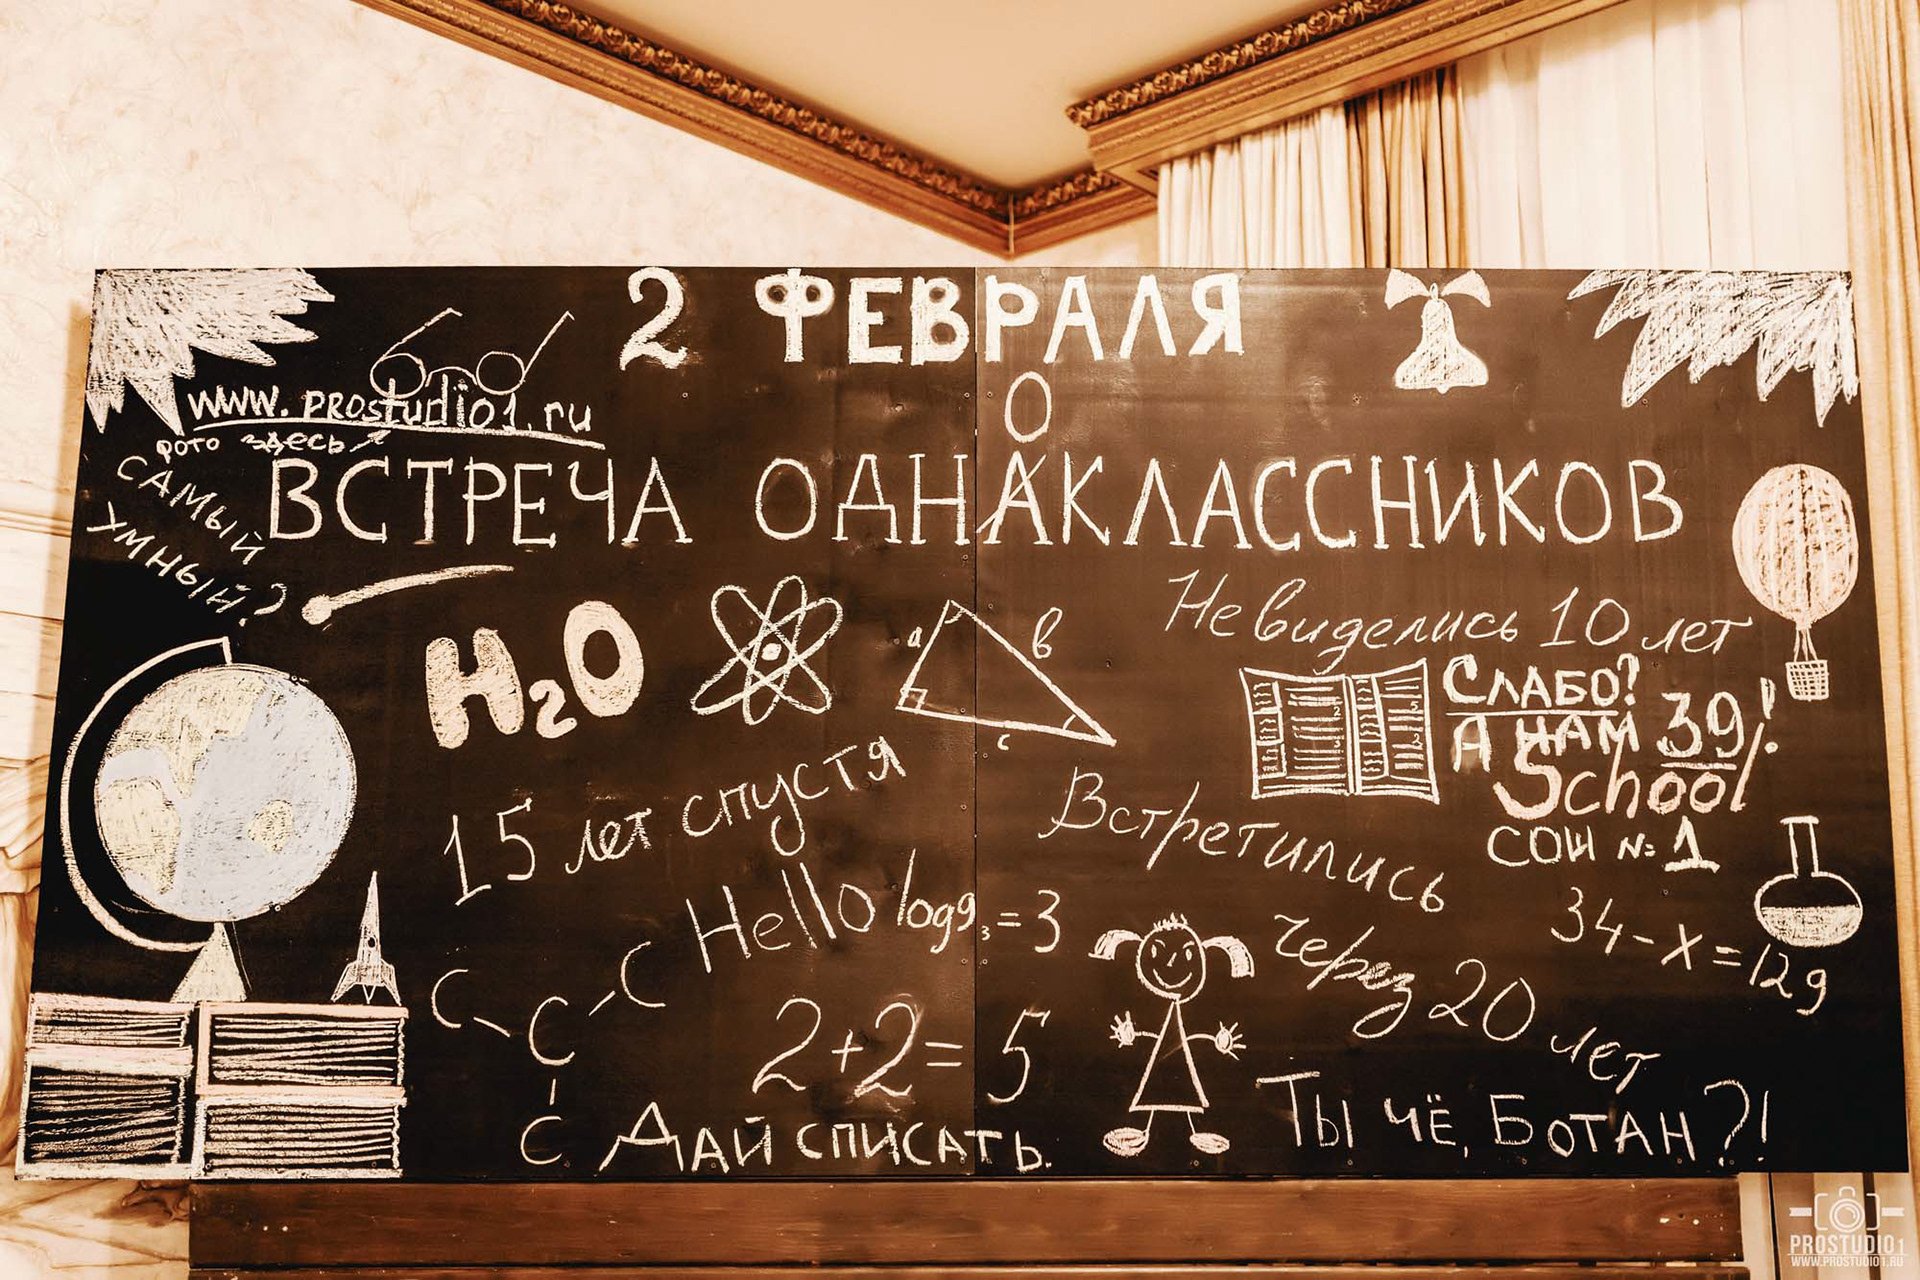 2 ФЕВРАЛЯ
www.prostudio1.ru
фото здесь
О
ВСТРЕЧА ОДНАКЛАССНИКОВ
САМЫЙ
ХМНЫЙ?
H2O
a
в
c
Не виделись 10 лет
СЛАБО?
А НАМ 39!
School
СОШ №1
15 лет спустя
Встретились
Hello log9₃=3
34-x=129
через 20 лет
C
C
C
C
2+2=5
ДАЙ СПИСАТЬ.
ТЫ ЧЁ, БОТАН?!
PROSTUDIO1
WWW.PROSTUDIO1.RU